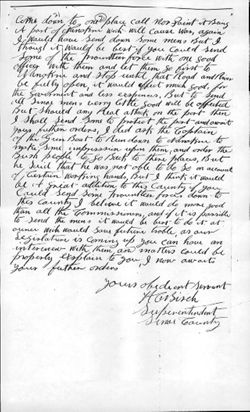 Come down to one place call New Point it being
A port of function with will cause war, again
I would have send down some men But I
thought it would be best if you could send
Some of the frountier force with one Good
officer with them and let them go first to
and stop with that Road and then
be fully open it would effect much good for
the Government and less expenses. But to send
all Sinoe men very little good will be affected
But should any Real attack on the port then
I shall send some to protect the port and await
your further orders, I did ask the Captain
of the Gun Boat to Run down to
make some impression upon them, and order the
people to Go Back to there places, But
he said that he was not able to do so on account
of Certain working hands, But I think it would
be a Great addition to this County if you
Could send some frountier force down to
this County I believe it would do more good
than all the Commissioners, and if it is possible
to send the men it would be best to do it at
once with would some future trouble, as our
Legislature is coming up you can have an
interview with them an matters could be
properly explain to you, I now await
your further orders
Yours obedient servant
Birch
Superintendent
Sinoe County